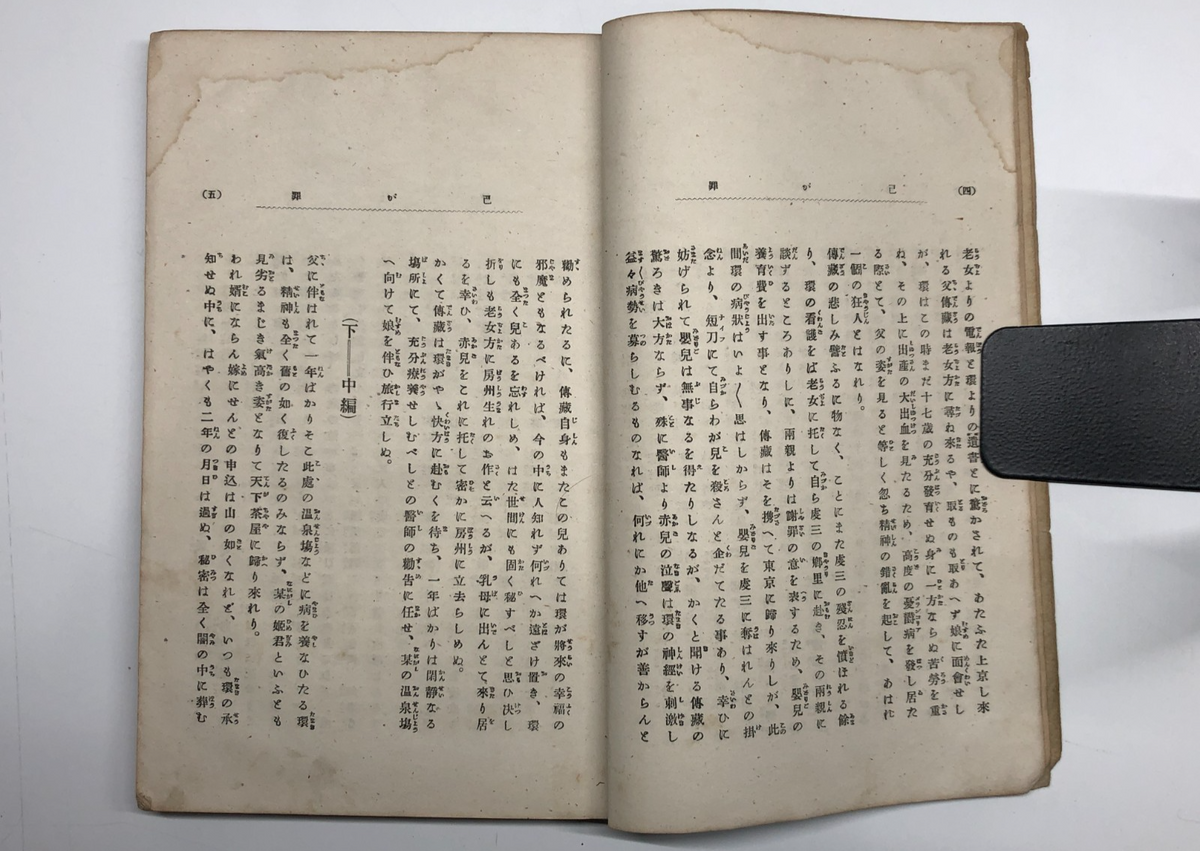 (四)
己が罪
老女よりの電報と環よりの遺書とに驚かされて、あたふた上京し來
れる父傳藏は老女方に尋ね來るや、取ものも取あへず娘に面會せし
が、環はこの時まだ十七歳の充分發育せぬ身に一方ならぬ苦勞を重
ね、その上に出產の大出血を見たるため、高度の憂鬱病を發し居た
る際とて、父の姿を見ると等しく忽ち精神の錯亂を起して、あはれ
一個の狂人とはなれり。
傳藏の悲しみ譬ふるに物なく、ことにまた虔三の殘忍を憤ほれる餘
り、環の看護をば老女に托して自ら虔三の鄕里に赴き、その兩親に
談ずるところありしに、兩親よりは謝罪の意を表するため、嬰兒の
養育費を出す事となり、傳藏はそを携へて東京に歸り來りしが、此
間環の病狀はいよ〱思はしからず、嬰兒を虔三に奪はれんとの掛
念より、短刀にて自らわが兒を殺さんと企だてたる事あり、幸ひに
妨げられて嬰兒は無事なるを得たりしなるが、かくと聞ける傳藏の
驚ろきは大方ならず、殊に醫師より赤兒の泣聲は環の神經を刺激し
益々病勢を募らしむるものなれば、何れにか他へ移すが善からんと
己が罪
(五)
勸められたるに、傳藏自身もまたこの兒ありては環が將來の幸福の
邪魔ともなるべければ、今の中に人知れず何れへか遠ざけ置き、環
にも全く兒あるを忘れしめ、はた世間にも固く秘すべしと思ひ決し
折しも老女方に房州生れのお作と云へるが、乳母に出んとて來り居
るを幸ひ、赤兒をこれに托して密かに房州に立去らしめぬ。
かくて傳藏は環がやゝ快方に赴むくを待ち、一年ばかりは閑靜なる
塲所にて、充分療養せしむべしとの醫師の勸告に任せ、某の溫泉塲
へ向けて娘を伴ひ旅行立しぬ。
(下――中編)
父に伴はれて一年ばかりそこ此處の溫泉塲などに病を養なひたる環
は、精神も全く舊の如く復したるのみならず、某の姬君といふとも
見劣るまじき氣高き姿となりて天下茶屋に歸り來れり。
われ婿にならん嫁にせんとの申込は山の如くなれど、いつも環の承
知せぬ中に、はやくも二年の月日は過ぬ、秘密は全く闇の中に葬む